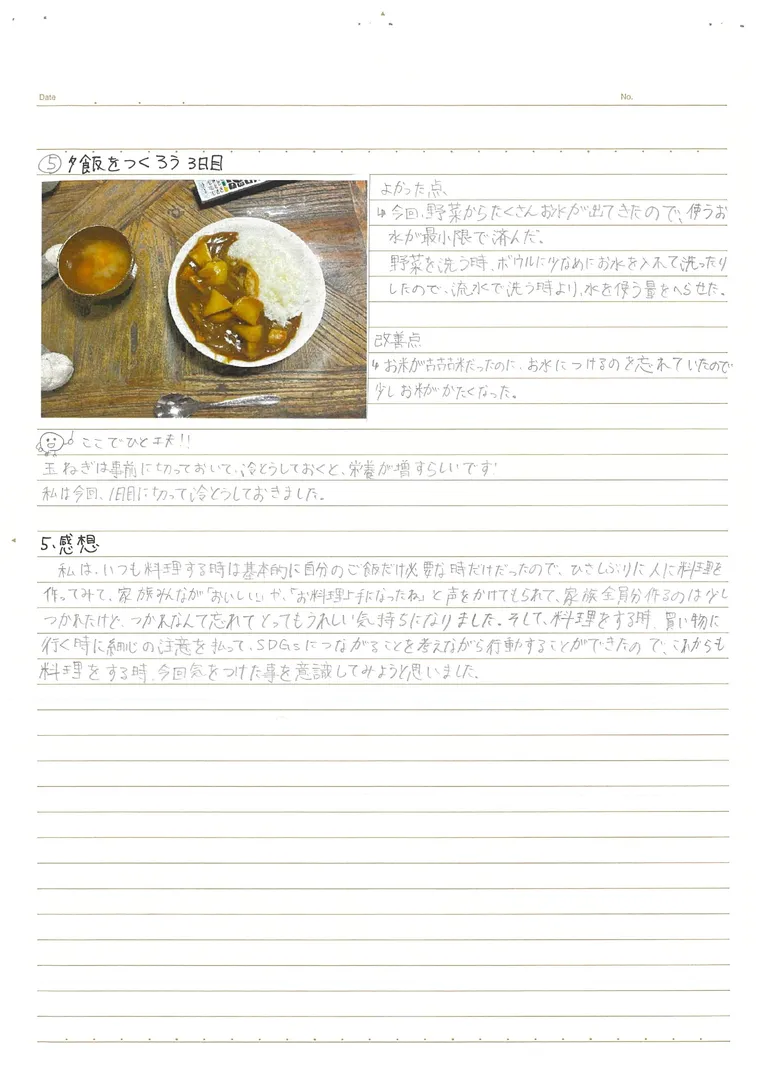 Date
No.
⑤夕飯をつくろう 3日目
よかった点
↳今回、野菜からたくさんお水が出てきたので、使うお
水が最小限で済んだ。
野菜を洗う時、ボウルに少なめにお水を入れて洗ったり
したので、流水で洗う時より、水を使う量をへらせた。
改善点
↳お米が古古古米だったのに、お水につけるのを忘れていたので
少しお米がかたくなった。
ここでひと工夫!!
玉ねぎは事前に切っておいて、冷とうしておくと、栄養が増すらしいです!
私は今回、1日目に切って冷とうしておきました。
5.感想
私は、いつも料理する時は基本的に自分のご飯だけ必要な時だけだったので、ひさしぶりに人に料理を
作ってみて、家族みんなが「おいしい」や、「お料理上手になったね」と声をかけてもられて、家族全員分作るのは少し
つかれたけど、つかれなんて忘れてとってもうれしい気持ちになりました。そして、料理をする時、買い物に
行く時に細心の注意を払って、SDGsにつながることを考えながら行動することができたので、これからも
料理をする時、今回気をつけた事を意識してみようと思いました。